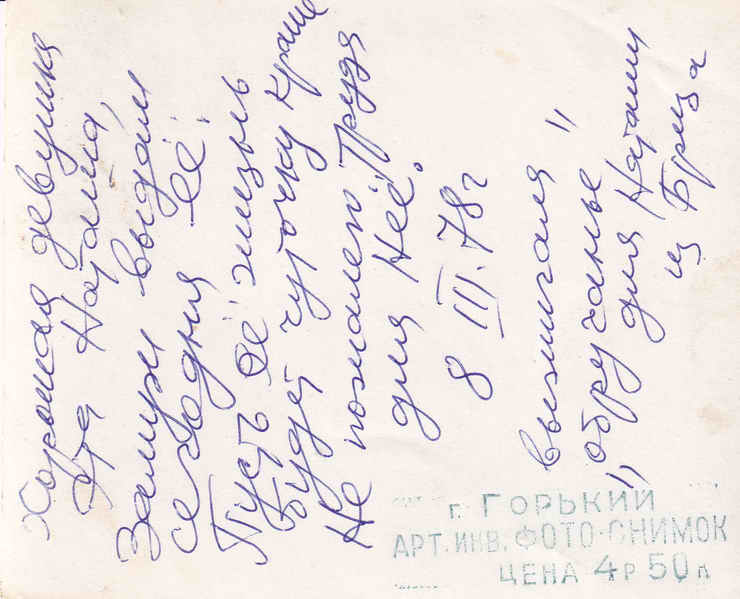 Хорошая девушка
Наташа,
Замуж выдали
сегодня её.
Пусть её жизнь
будет чуточку краше
Не пожалею труда
для Неё.
8 III. 78г
выжигала
"обручанье"
для Наташи
из Бриза
г. ГОРЬКИЙ
АРТ. ИНВ. ФОТО-СНИМОК
ЦЕНА 4р 50к